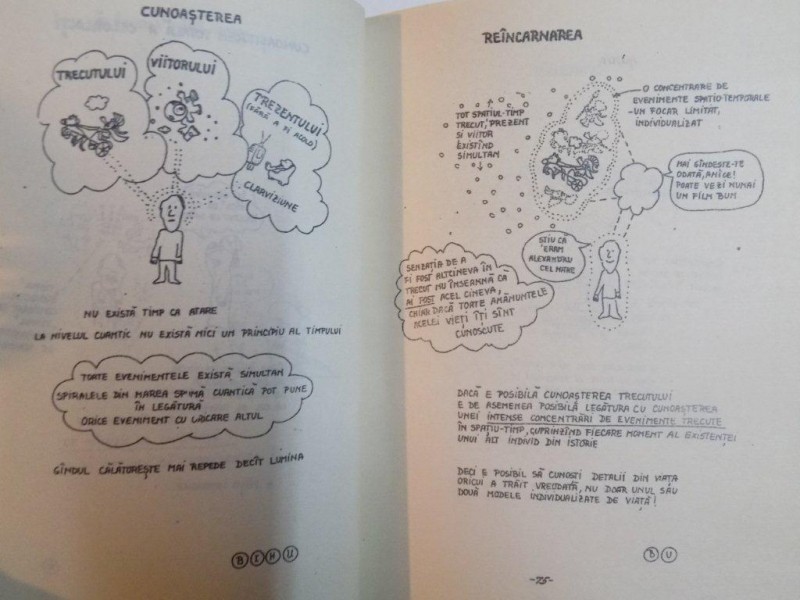 CUNOAȘTEREA
TRECUTULUI
VIITORULUI
TREZENTULUI
(FĂRĂ A FI ACOLO)
CLARVIZIUNE
NU EXISTĂ TIMP CA ATARE
LA NIVELUL CUANTIC NU EXISTĂ NICI UN PRINCIPIU AL TIMPULUI
TOATE EVENIMENTELE EXISTĂ SIMULTAN
SPIRALELE DIN MAREA SPUMĂ CUANTICĂ POT PUNE
ÎN LEGĂTURĂ
ORICE EVENIMENT CU ORICARE ALTUL
GÎNDUL CĂLĂTOREȘTE MAI REPEDE DECÎT LUMINA
B E H U
REÎNCARNAREA
TOT SPAȚIUL-TIMP
TRECUT, PREZENT
SI VIITOR
EXISTÎND
SIMULTAN
O CONCENTRARE DE
EVENIMENTE SPATIO-TEMPORALE
-UN FOCAR LIMITAT,
INDIVIDUALIZAT
MAI GÎNDESTE-TE
ODATĂ, AMICE!
POATE VEZI NUMAI
UN FILM BUN
STIU CĂ
ERAM
ALEXANDRU
CEL MARE
SENZATIA DE A
FI FOST ALTCINEVA ÎN
TRECUT NU ÎNSEAMNĂ CĂ
AI FOST ACEL CINEVA,
CHIAR DACĂ TOATE AMĂNUNTELE
ACELEI VIEȚI ÎTI SÎNT
CUNOSCUTE
DACĂ E POSIBILĂ CUNOAȘTEREA TRECUTULUI
E DE ASEMENEA POSIBILĂ LEGĂTURA CU CUNOAȘTEREA
UNEI INTENSE CONCENTRĂRI DE EVENIMENTE TRECUTE
ÎN SPATIU-TIMP, CUPRINZÎND FIECARE MOMENT AL EXISTENȚEI
UNUI ALT INDIVID DIN ISTORIE
DECI E POSIBIL SĂ CUNOSTI DETALII DIN VIAȚA
ORICUI A TRĂIT VREODATĂ, NU DOAR UNUL SAU
DOUĂ MODELE INDIVIDUALIZATE DE VIAȚĂ!
B U